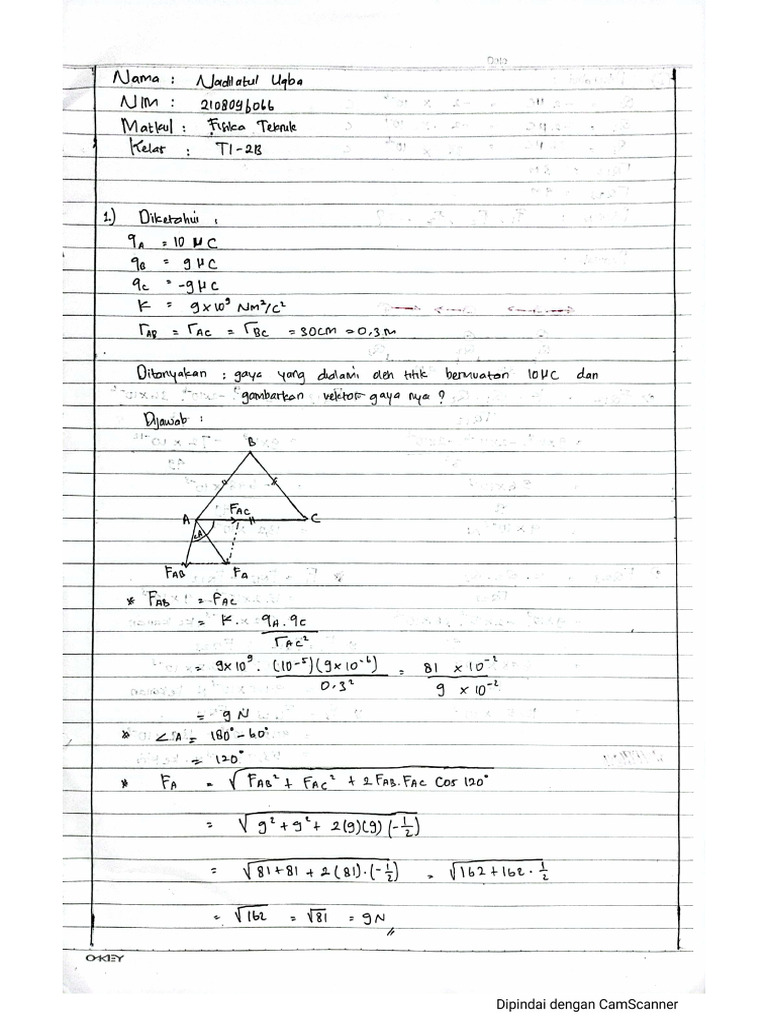 Nama : Nadilatul Uqba
NIM : 2108096066
Matkul : Fisika Teknik
Kelas : TI-2B
1.) Diketahui :
qA = 10 μC
qB = 9 μC
qC = -9 μC
K = 9x10⁹ Nm²/C²
rAB = rAC = rBC = 30cm = 0,3 M
Ditanyakan : gaya yang dialami oleh titik bermuatan 10 μC dan
gambarkan vektor gaya nya ?
Dijawab :
B
FAC
A C
∠A
FAB FA
* FAB = FAC
= K . x . qA . qC / rAC²
= 9x10⁹ . (10⁻⁵)(9x10⁻⁶) / 0.3² = 81 x 10⁻² / 9 x 10⁻²
= 9 N
* ∠A = 180° - 60°
= 120°
* FA = √FAB² + FAC² + 2 FAB . FAC Cos 120°
= √9² + 9² + 2(9)(9)(-1/2)
= √81+81 + 2(81).(-1/2) = √162+162 . 1/2
= √162 = √81 = 9N //
OKEY
Dipindai dengan CamScanner